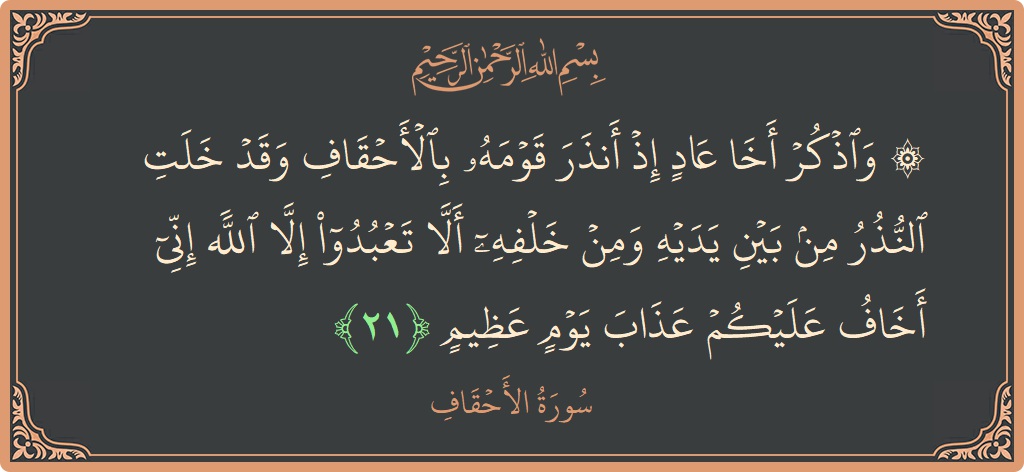 بِسْمِ اللَّهِ الرَّحْمَٰنِ الرَّحِيمِ
۞ وَٱذْكُرْ أَخَا عَادٍ إِذْ أَنذَرَ قَوْمَهُۥ بِٱلْأَحْقَافِ وَقَدْ خَلَتِ
ٱلنُّذُرُ مِنۢ بَيْنِ يَدَيْهِ وَمِنْ خَلْفِهِۦٓ أَلَّا تَعْبُدُوٓا۟ إِلَّا ٱللَّهَ إِنِّىٓ
أَخَافُ عَلَيْكُمْ عَذَابَ يَوْمٍ عَظِيمٍ ﴿٢١﴾
سُورَةُ الأَحْقَافِ